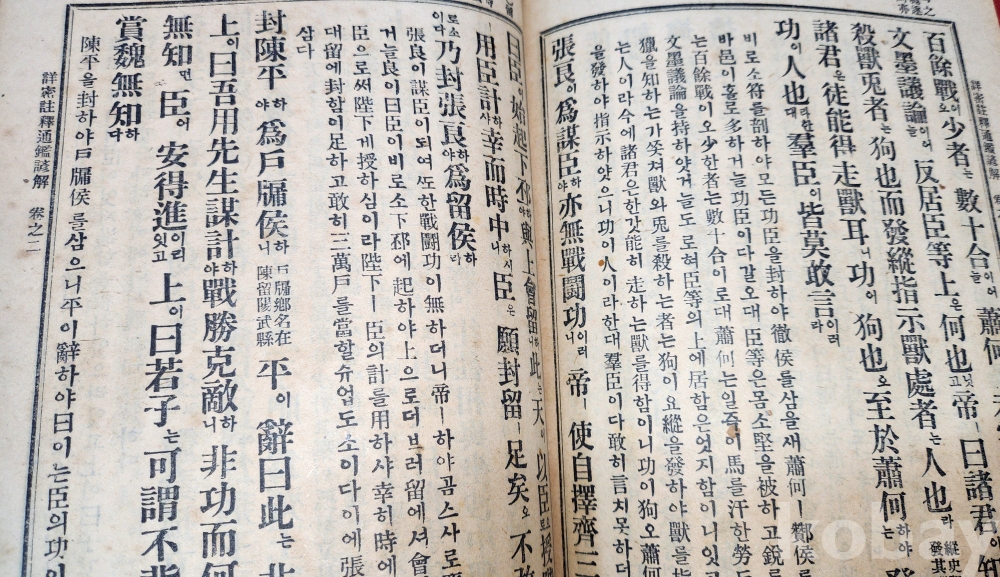 百餘戰이오少者는數十合늘이어蕭何
文墨議論늘이어反居臣等上은何也고닛帝ㅣ曰諸君이
殺獸兎者는狗也而發縱指示獸處者는人也라
諸君은徒能得走獸耳니功이狗也오至於蕭何는하야
功이人也라대한羣臣이皆莫敢言이러라
비로소符를剖하야모든功臣을封하야徹侯를삼을새蕭何ㅣ酇侯를
바邑이홀로多하거늘功臣이다갈오대臣等은몸소堅을被하고銳를
는百餘戰이오少한者는數十合이로대蕭何는일즉이馬를汗한勞
文墨議論을持하얏거늘도로혀臣等의上에居함은엇지함이니잇고
獵을知하는가쏫쳐獸와兎를殺하는者는狗이요縱을發하야獸를指
는人이라今에諸君은한갓能히走하는獸를得함이니功이狗오蕭何
을發하야指示하얏으니功이人이라한대羣臣이다敢히言치못하더
張良이爲謀臣하야亦無戰鬪功이러니帝ㅣ使自擇齊三
曰臣이始起下邳하야與上會留하니此는天이以臣으로授
用臣計하사幸而時中하시니臣은願封留ㅣ足矣오不敢
로소이다乃封張良하야爲留侯하라
張良이謀臣이되여또한戰鬪功이無하더니帝ㅣ하야곰스사로
거늘良이曰臣이비로소下邳에起하야上으로더브러留에셔會
臣으로써陛下게授하심이라陛下ㅣ臣의計를用하샤幸히時에
대留에封함이足하고敢히三萬戶를當할슈업도소이다이에張
삼다
封陳平하야爲戶牖侯하니戶牖鄕名在陳留陽武縣平이辭曰此는非
上이曰吾用先生謀計하야戰勝克敵하니非功而何
無知면臣이安得進이리잇고上이曰若子는可謂不背
賞魏無知하다
陳平을封하야戶牖侯를삼으니平이辭하야曰이는臣의功이
詳密註釋通鑑諺解 卷之二